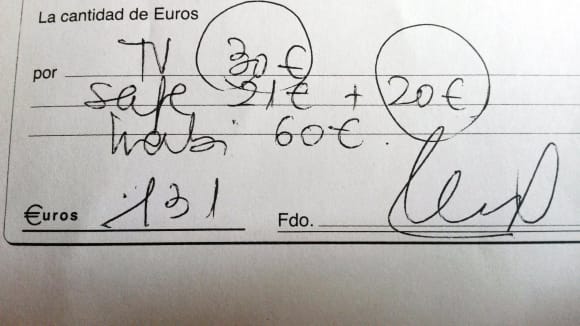 La cantidad de Euros
por TV 30€
safe 21€ + 20€
60€.
€uros 131
Fdo.